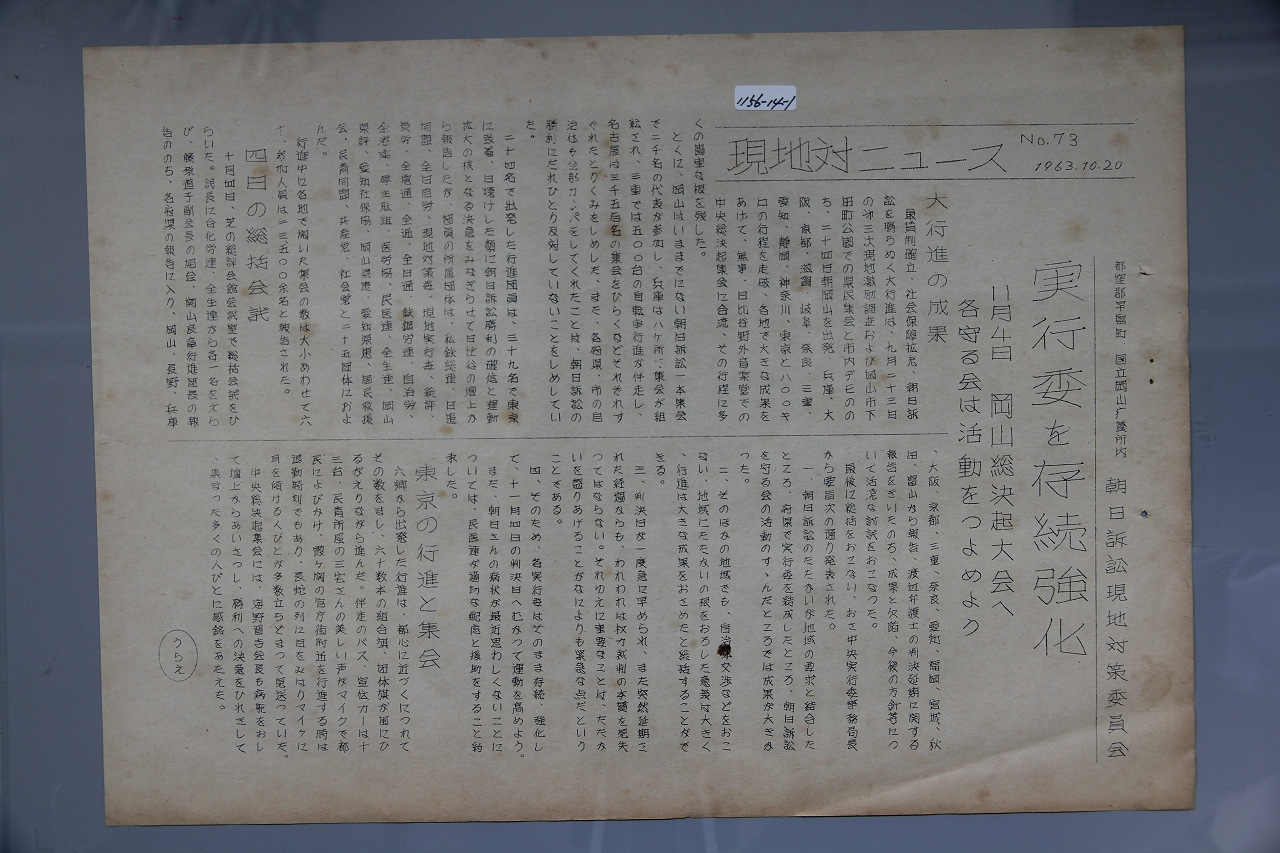 1156-14-1
現地対ニュース
No.73
1963.10.20
都窪郡早島町 国立岡山療養所内 朝日訴訟現地対策委員会
実行委を存続強化
11月4日 岡山総決起大会へ
各守る会は活動をつよめよう
大行進の成果
最賃制確立、社会保障拡充、朝日訴
訟を勝ちぬく大行進は、九月二十三日
の第三次現地激励調査および岡山市下
田町公園での県民集会と市内デモのの
ち、二十四日朝岡山を出発、兵庫、大
阪、京都、滋賀、岐阜、奈良、三重、
愛知、静岡、神奈川、東京と八〇〇キ
ロの行程を走破、各地で大きな成果を
あげて、無事、日比谷野外音楽堂での
中央総決起集会に合流、その行程に多
くの貴重な根を残した。
とくに、岡山はいままでにない朝日訴訟一本集会
で二千名の代表が参加し、兵庫は八ヶ所で集会が組
織され、三重では五〇〇台の自転車行進が伴走し、
名古屋は三千五百名の集会をひらくなどそれぞれす
ぐれたとりくみをしめした。また、各府県、市の自
治体も全部カンパをしてくれたことは、朝日訴訟の
勝利にだれひとり反対していないことをしめしてい
た。
二十四名で出発した行進団員は、三十九名で東京
に到着、日焼けした顔に朝日訴訟勝利の確信と運動
拡大の核となる決意をみなぎらせて日比谷の壇上か
ら報告したが、団員の所属団体は、私鉄総連、日患
同盟、全日自労、現地対策委、現地実行委、総評、
炭労、全電通、全逓、全日通、鉄鋼労連、自治労、
全港湾、厚生私組、医労協、民医連、全生連、岡山
県評、愛知社保協、岡山県患、愛知県患、国民救援
会、民青同盟、共産党、社会党と二十五団体におよ
んだ。
行進中に各地で開いた集会の数は大小あわせて六
十、参加人員は二三、五〇〇余名と報告された。
四日の総括会議
十月四日、芝の総評会館会議室で総括会議をひ
らいた。議長に合化労連、全生連から各一名をえら
び、藤原道子副会長の挨会、岡山民斎行進団長の報
告ののち、各府県の報告に入り、岡山、長野、兵庫
、大阪、京都、三重、奈良、愛知、福岡、宮城、秋
田、富山から報告、渡辺弁護士の判決延期に関する
報告をきいたのち、成果と欠陥、今後の方針等につ
いて活溌な討議をおこなった。
最後に総括をおこない、おさ中央実行委事務局長
から要旨次の通り発表された。
一、朝日訴訟のたたかいが地域の要求と結合した
ところ、府県で実行委を結成したところ、朝日訴訟
を守る会の活動のすゝんだところでは成果が大きか
った。
二、そのほかの地域でも、自治体交渉などをおこ
ない、地域にたたかいの根をおろした意義は大きく
、行進は大きな成果をおさめたと総括することがで
きる。
三、判決日が一度急に早められ、また突然延期さ
れた経過からも、われわれは权力裁判の本質を見失
ってはならない。それゆえに重要なことは、たたか
いを盛りあげることがなによりも緊急な点だという
ことである。
四、そのため、各実行委はそのまま存続、強化し
て、十一月四日の判決日へむかって運動を高めよう。
また、朝日さんの病状が最近思わしくないことに
ついては、民医連が適切な配慮と援助をすること約
束した。
東京の行進と集会
六郷から出発した行進は、都心に近づくにつれて
その数をまし、六十数本の組合旗、団体旗が風にひ
るがえりながら進んだ。伴走のバス、宣伝カーは十
三台、民青所属の三宅さんの美しい声がマイクで都
民によびかけ、霞ヶ関の官庁街附近を行進する時は
退勤時刻でもあり、長蛇の列に目をみはりマイクに
耳を傾ける人びとが多数立ちどまって見送っていた。
中央総決起集会には、海野晋吉会長も病躯をおし
て壇上からあいさつし、勝利への決意をひれきして
、集まった多くの人びとに感銘をあたえた。
うらえ